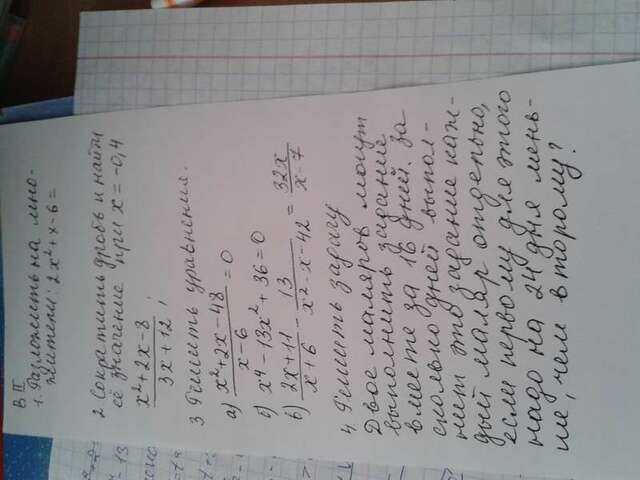 В II
1. Разложить на мно-
жители: 2x² + x - 6 =
2 Сократить дробь и найти
её значение при x = -0,4
x² + 2x - 8 / 3x + 12 ;
3 Решить уравнения.
а) x² + 2x - 48 / x - 6 = 0
б) x⁴ - 13x² + 36 = 0
в) 2x + 11 / x + 6 - 13 / x² - x - 42 = 32x / x - 7
4. Решить задачу
Двое маляров могут
выполнить задание
вместе за 16 дней. За
сколько дней выпол-
нит это задание каж-
дый маляр отдельно,
если первому для этого
надо на 24 дня мень-
ше, чем второму?